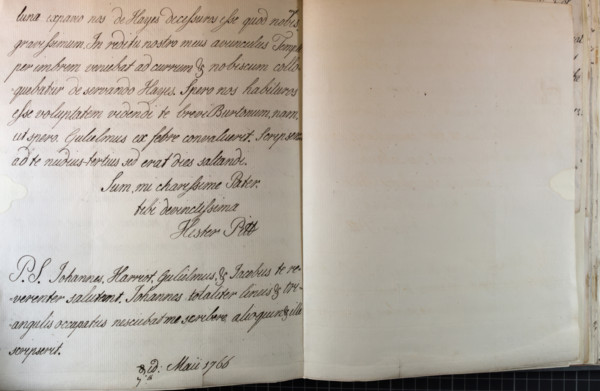 luna expano nos de Hayes decessuros esse quod nobis
gravissemum. In reditu nostro meus avunculus Temple
per imbrem veniebat ad currum & nobiscum collo-
quebatur de servando Hayes. Spero nos habituros
esse voluptatem videndi te brevi Burtonum, nam
ut spero, Gulielmus ex febre convaluerit. Scripsi
ad te nudius-tertius sed erat dies saltandi.
Sum, mi charissime Pater,
tibi devinctissima
Hester Pitt
P.S. Johannes, Harriot, Gulielmus, & Jacobus te re-
-verenter salutant. Johannes totaliter lineis & tri-
-angulis occupatus nesciebat me scribere, alioquin & ille
scripserit.
id: Maii 1766